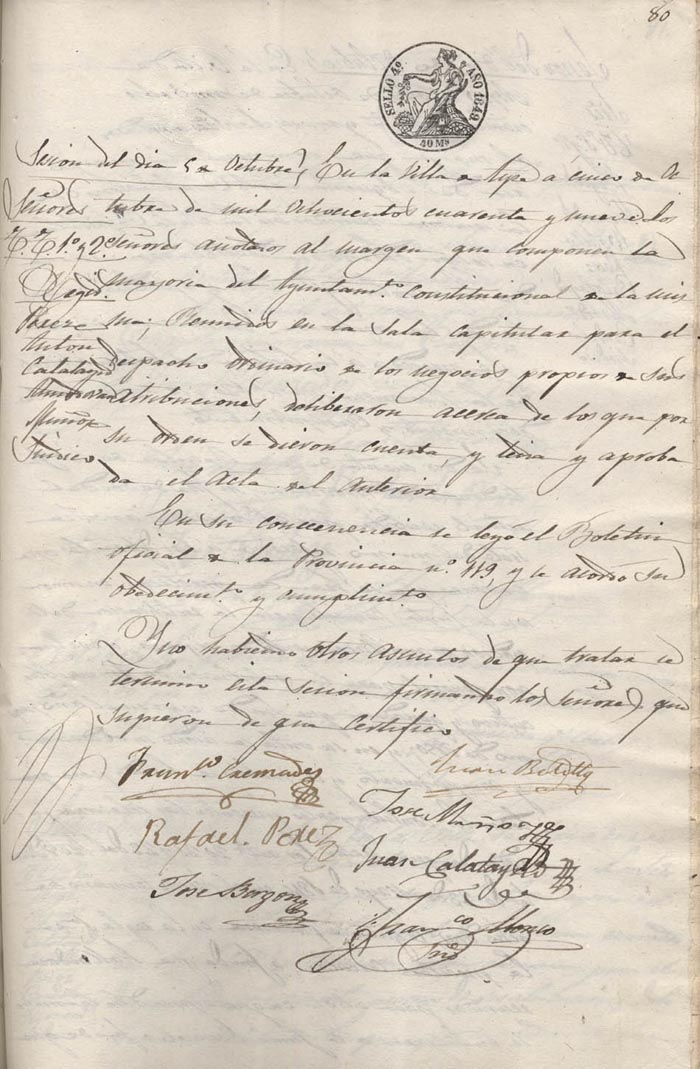 80
SELLO 4º AÑO 1849
40 Ms
Sesion del dia 5 de Octubre,
Señores
T. T. 1º y 2º
Regid.
Perez
Anton
Calatayud
Muñoz
Sindico
En la Villa de Aspe a cinco de Oc
tubre de mil ochocientos cuarenta y nueve: los
Señores anotados al margen que componen la
mayoria del Ayuntamto. Constitucional de la mis
ma; Reunidos en la Sala Capitular para el
despacho ordinario de los negocios propios de sus
atribuciones, deliberaron acerca de los que por
su orden se dieron cuenta, y leida y aproba
da el Acta del Anterior
En su concecuencia se leyó el Boletin
oficial de la Provincia nº 119, y se acordo su
obedecimto. y cumplimto.
Y no habiendo otros asuntos de que tratar se
termino esta sesion firmando los Señores que
supieron de que certifico
Franco. Cremades
Juan
Jose Muñoz
Rafael Perez
Juan Calatayud
Jose
Franco Alonso
Srio